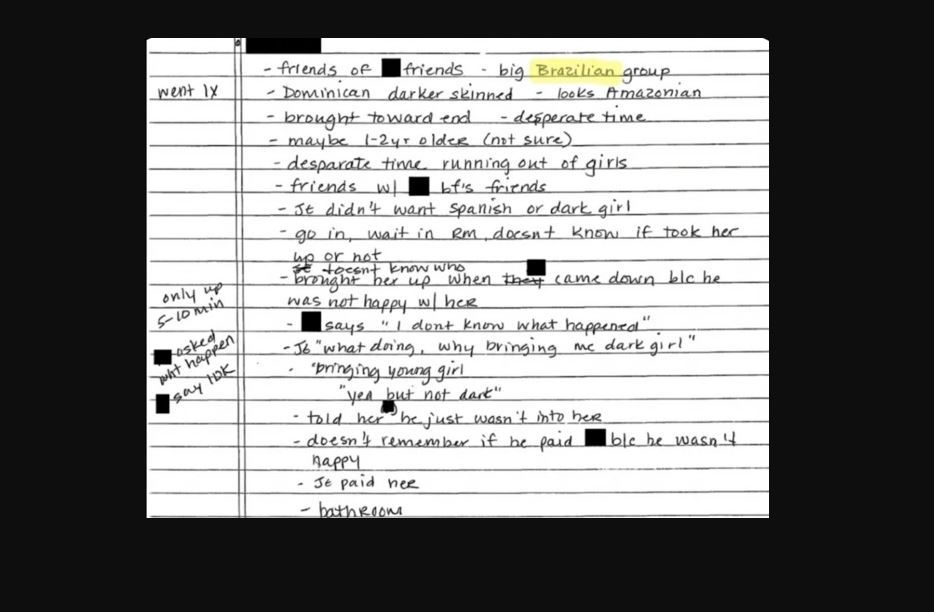 - friends of friends - big Brazilian group
went 1x
- Dominican darker skinned - looks Amazonian
- brought toward end - desperate time
- maybe 1-2yr older (not sure)
- desparate time running out of girls
- friends w/ bf's friends
- JE didn't want Spanish or dark girl
- go in, wait in RM, doesnt know if took her
up or not
doesnt know who
- brought her up when they came down b/c he
was not happy w/ her
only up
5-10 min
- says "I dont know what happened"
asked
wht happen
say IDK
- JE "what doing, why bringing me dark girl"
- "bringing young girl
"yea but not dark"
- told her he just wasn't into her
- doesn't remember if he paid b/c he wasn't
happy
- JE paid her
- bathroom